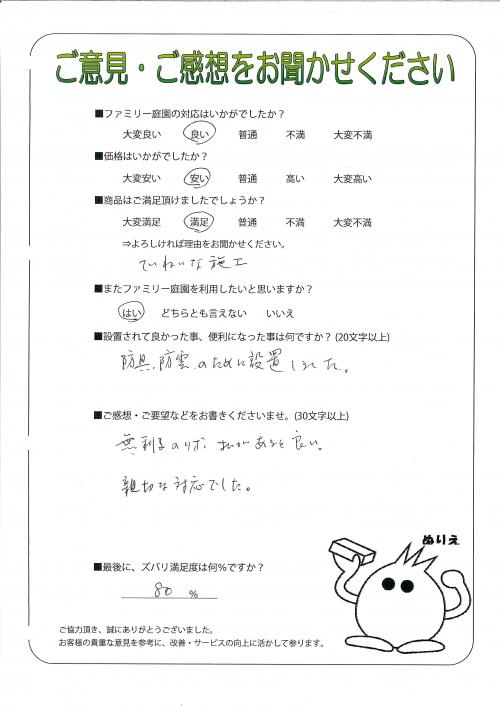 ご意見・ご感想をお聞かせください
■ファミリー庭園の対応はいかがでしたか?
大変良い 良い 普通 不満 大変不満
■価格はいかがでしたか?
大変安い 安い 普通 高い 大変高い
■商品はご満足頂けましたでしょうか?
大変満足 満足 普通 不満 大変不満
⇒よろしければ理由をお聞かせください。
ていねいな施工
■またファミリー庭園を利用したいと思いますか?
はい どちらとも言えない いいえ
■設置されて良かった事、便利になった事は何ですか?(20文字以上)
防風、防雪、のために設置しました。
■ご感想・ご要望などをお書きくださいませ。(30文字以上)
無利子のリボ払いがあると良い。
親切な対応でした。
ぬりえ
■最後に、ズバリ満足度は何%ですか?
80 %
ご協力頂き、誠にありがとうございました。
お客様の貴重な意見を参考に、改善・サービスの向上に活かして参ります。